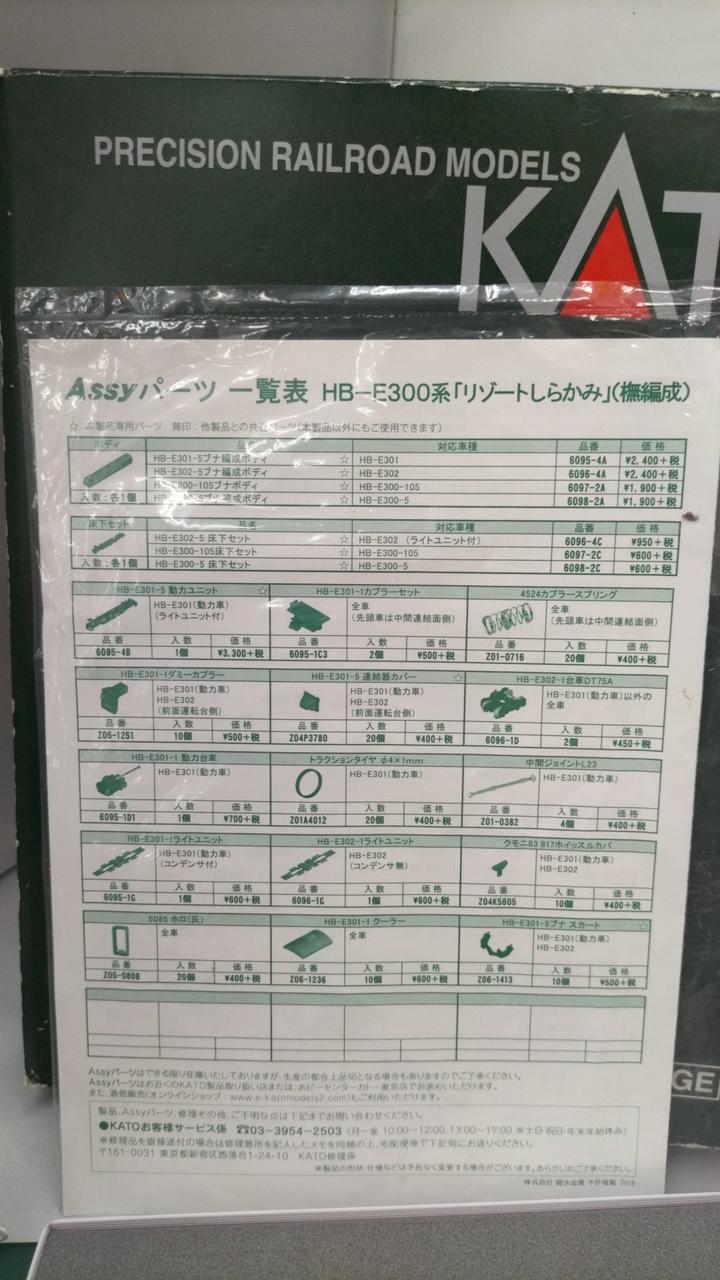 PRECISION RAILROAD MODELS
KAT
Assyパーツ 一覧表 HB-E300系「リゾートしらかみ」(橅編成)
☆:本製品専用パーツ 無印:他製品との共通パーツ(本製品以外にもご使用できます)
ボディ 品名 対応車種 品番 価格
HB-E301-5ブナ編成ボディ ☆ HB-E301 6095-4A ¥2,400+税
HB-E302-5ブナ編成ボディ ☆ HB-E302 6096-4A ¥2,400+税
HB-E300-105ブナボディ ☆ HB-E300-105 6097-2A ¥1,900+税
入数:各1個 HB-E300-5ブナ編成ボディ ☆ HB-E300-5 6098-2A ¥1,900+税
床下セット 品名 対応車種 品番 価格
HB-E302-5 床下セット ☆ HB-E302 (ライトユニット付) 6096-4C ¥950+税
HB-E300-105床下セット ☆ HB-E300-105 6097-2C ¥600+税
入数:各1個 HB-E300-5 床下セット ☆ HB-E300-5 6098-2C ¥600+税
HB-E301-5 動力ユニット ☆ HB-E301-1カプラーセット 4524カプラースプリング
HB-E301(動力車) 全車 全車
(ライトユニット付) (先頭車は中間連結面側) (先頭車は中間連結面側)
品番 入数 価格 品番 入数 価格 品番 入数 価格
6095-4B 1個 ¥3,300+税 6095-1C3 2個 ¥500+税 Z01-0716 20個 ¥400+税
HB-E301-1ダミーカプラー HB-E301-5 連結器カバー ☆ HB-E302-1台車DT75A
HB-E301(動力車) HB-E301(動力車) HB-E301(動力車)以外の
HB-E302 HB-E302 全車
(前面運転台側) (前面運転台側)
品番 入数 価格 品番 入数 価格 品番 入数 価格
Z06-1251 10個 ¥500+税 Z04P3780 20個 ¥400+税 6096-1D 2個 ¥450+税
HB-E301-1 動力台車 トラクションタイヤ φ4×1mm 中間ジョイントL23
HB-E301(動力車) HB-E301(動力車) HB-E301(動力車)
品番 入数 価格 品番 入数 価格 品番 入数 価格
6095-1D1 1個 ¥700+税 Z01A4012 20個 ¥400+税 Z01-0382 4個 ¥400+税
HB-E301-1ライトユニット HB-E302-1ライトユニット クモニ83 817ホイッスルカバ
HB-E301(動力車) HB-E302 HB-E301(動力車)
(コンデンサ付) (コンデンサ無) HB-E302
品番 入数 価格 品番 入数 価格 品番 入数 価格
6095-1G 1個 ¥600+税 6096-1G 1個 ¥600+税 Z04K5605 10個 ¥400+税
5085 ホロ(灰) HB-E301-1 クーラー HB-E301-5ブナ スカート ☆
全車 全車 HB-E301(動力車)
HB-E302
品番 入数 価格 品番 入数 価格 品番 入数 価格
Z05-0808 20個 ¥400+税 Z06-1236 10個 ¥600+税 Z06-1413 10個 ¥500+税
Assyパーツはできる限り在庫いたしておりますが、生産の都合上品切となる場合もありますのでご了承ください。
Assyパーツはお近くのKATO製品取り扱い店または、ホビーセンターカトー東京店でお求めいただけます。
また、通信販売(オンラインショップ:www.e-katomodels2.com)もご利用いただけます。
製品、Assyパーツ、修理その他、ご不明な点は下記までお問い合わせください。
●KATOお客様サービス係 ☎03-3954-2503 (月~金 10:00~12:00, 13:00~17:00 ※土日・祝日・年末年始休み)
※修理品を直接送付の場合は修理箇所を記入したメモを同梱の上、宅配便等で下記宛にお送りください。
〒161-0031 東京都新宿区西落合1-24-10 KATO修理係
※製品の形状・仕様などは予告なく変更する場合がございます。あらかじめご了承ください。
株式会社 関水金属 不許複製 2018
GE